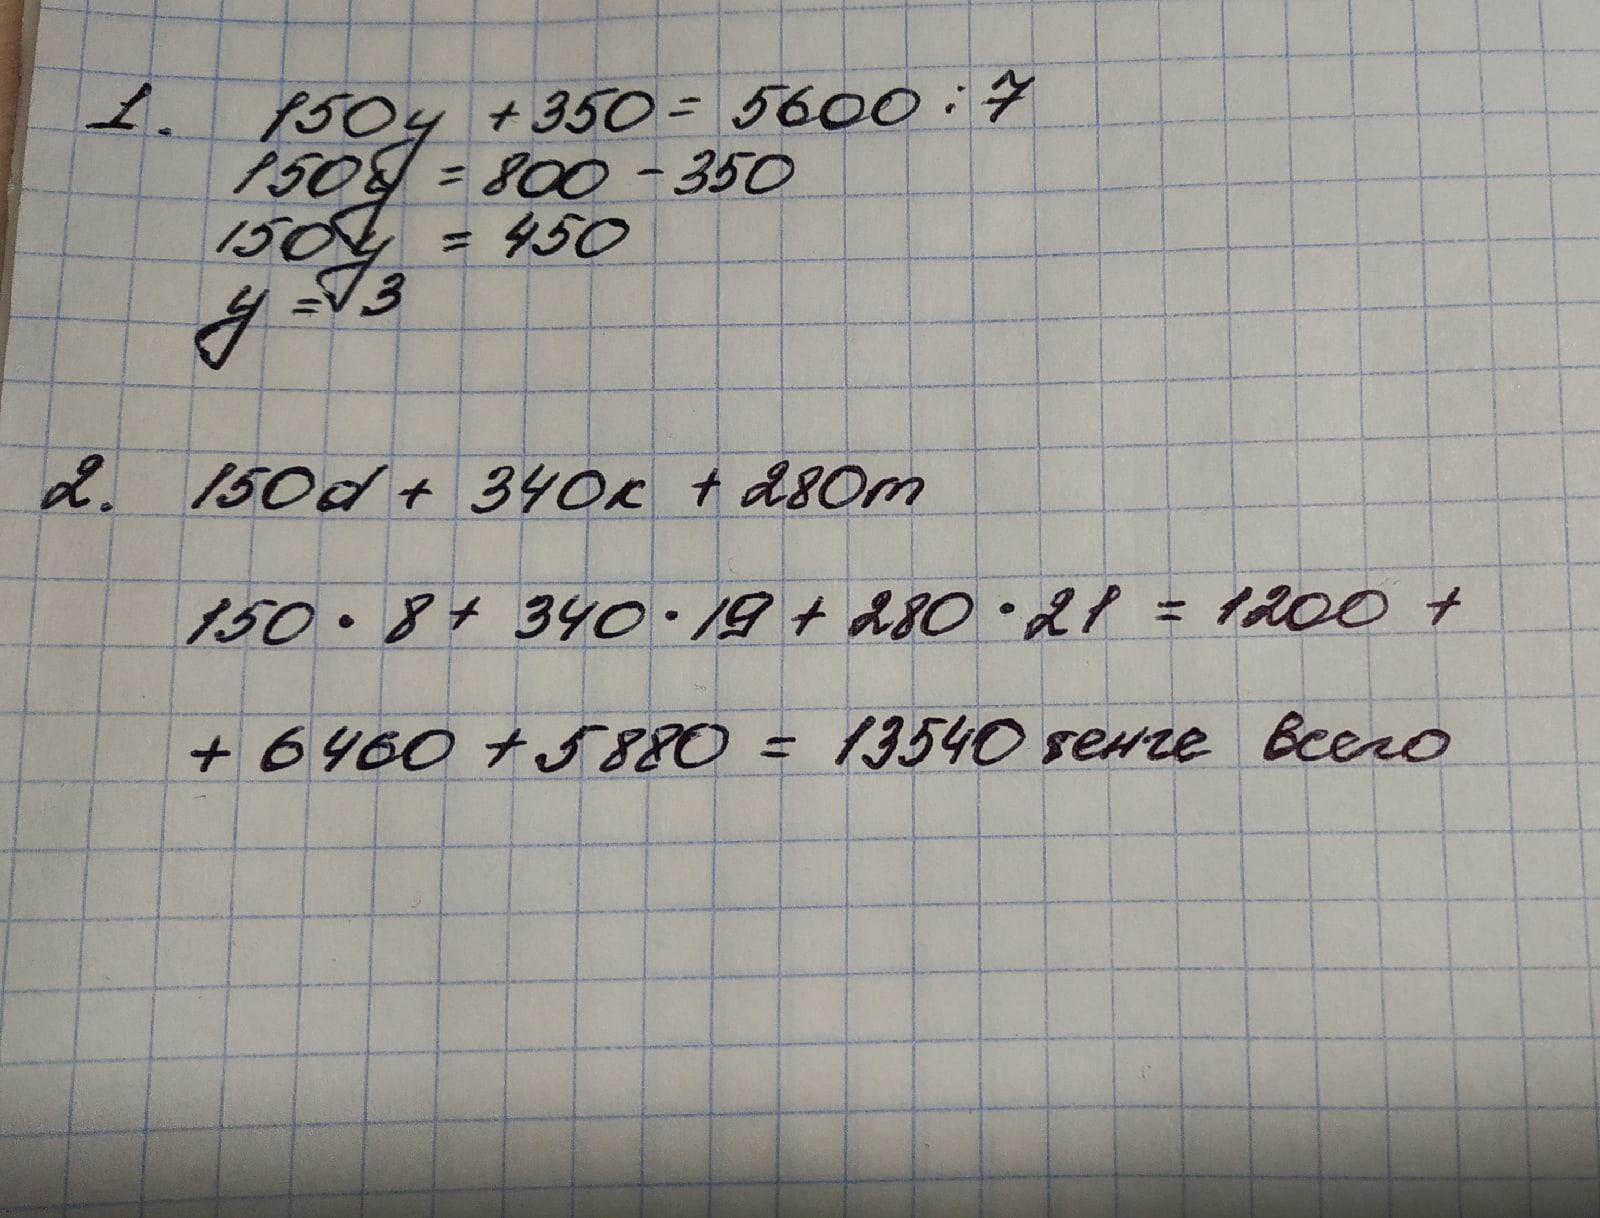 1. 150y + 350 = 5600 : 7
150y = 800 - 350
150y = 450
y = 3
2. 150d + 340к + 280m
150 · 8 + 340 · 19 + 280 · 21 = 1200 +
+ 6460 + 5880 = 13540 тенге всего